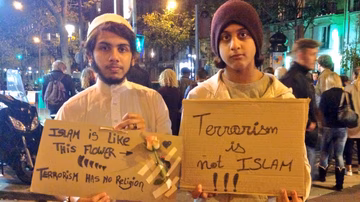 ISLAM is Like
THIS FLOWER →
TERRORISM HAS NO Religion
Terrorism
is
not ISLAM
!!!